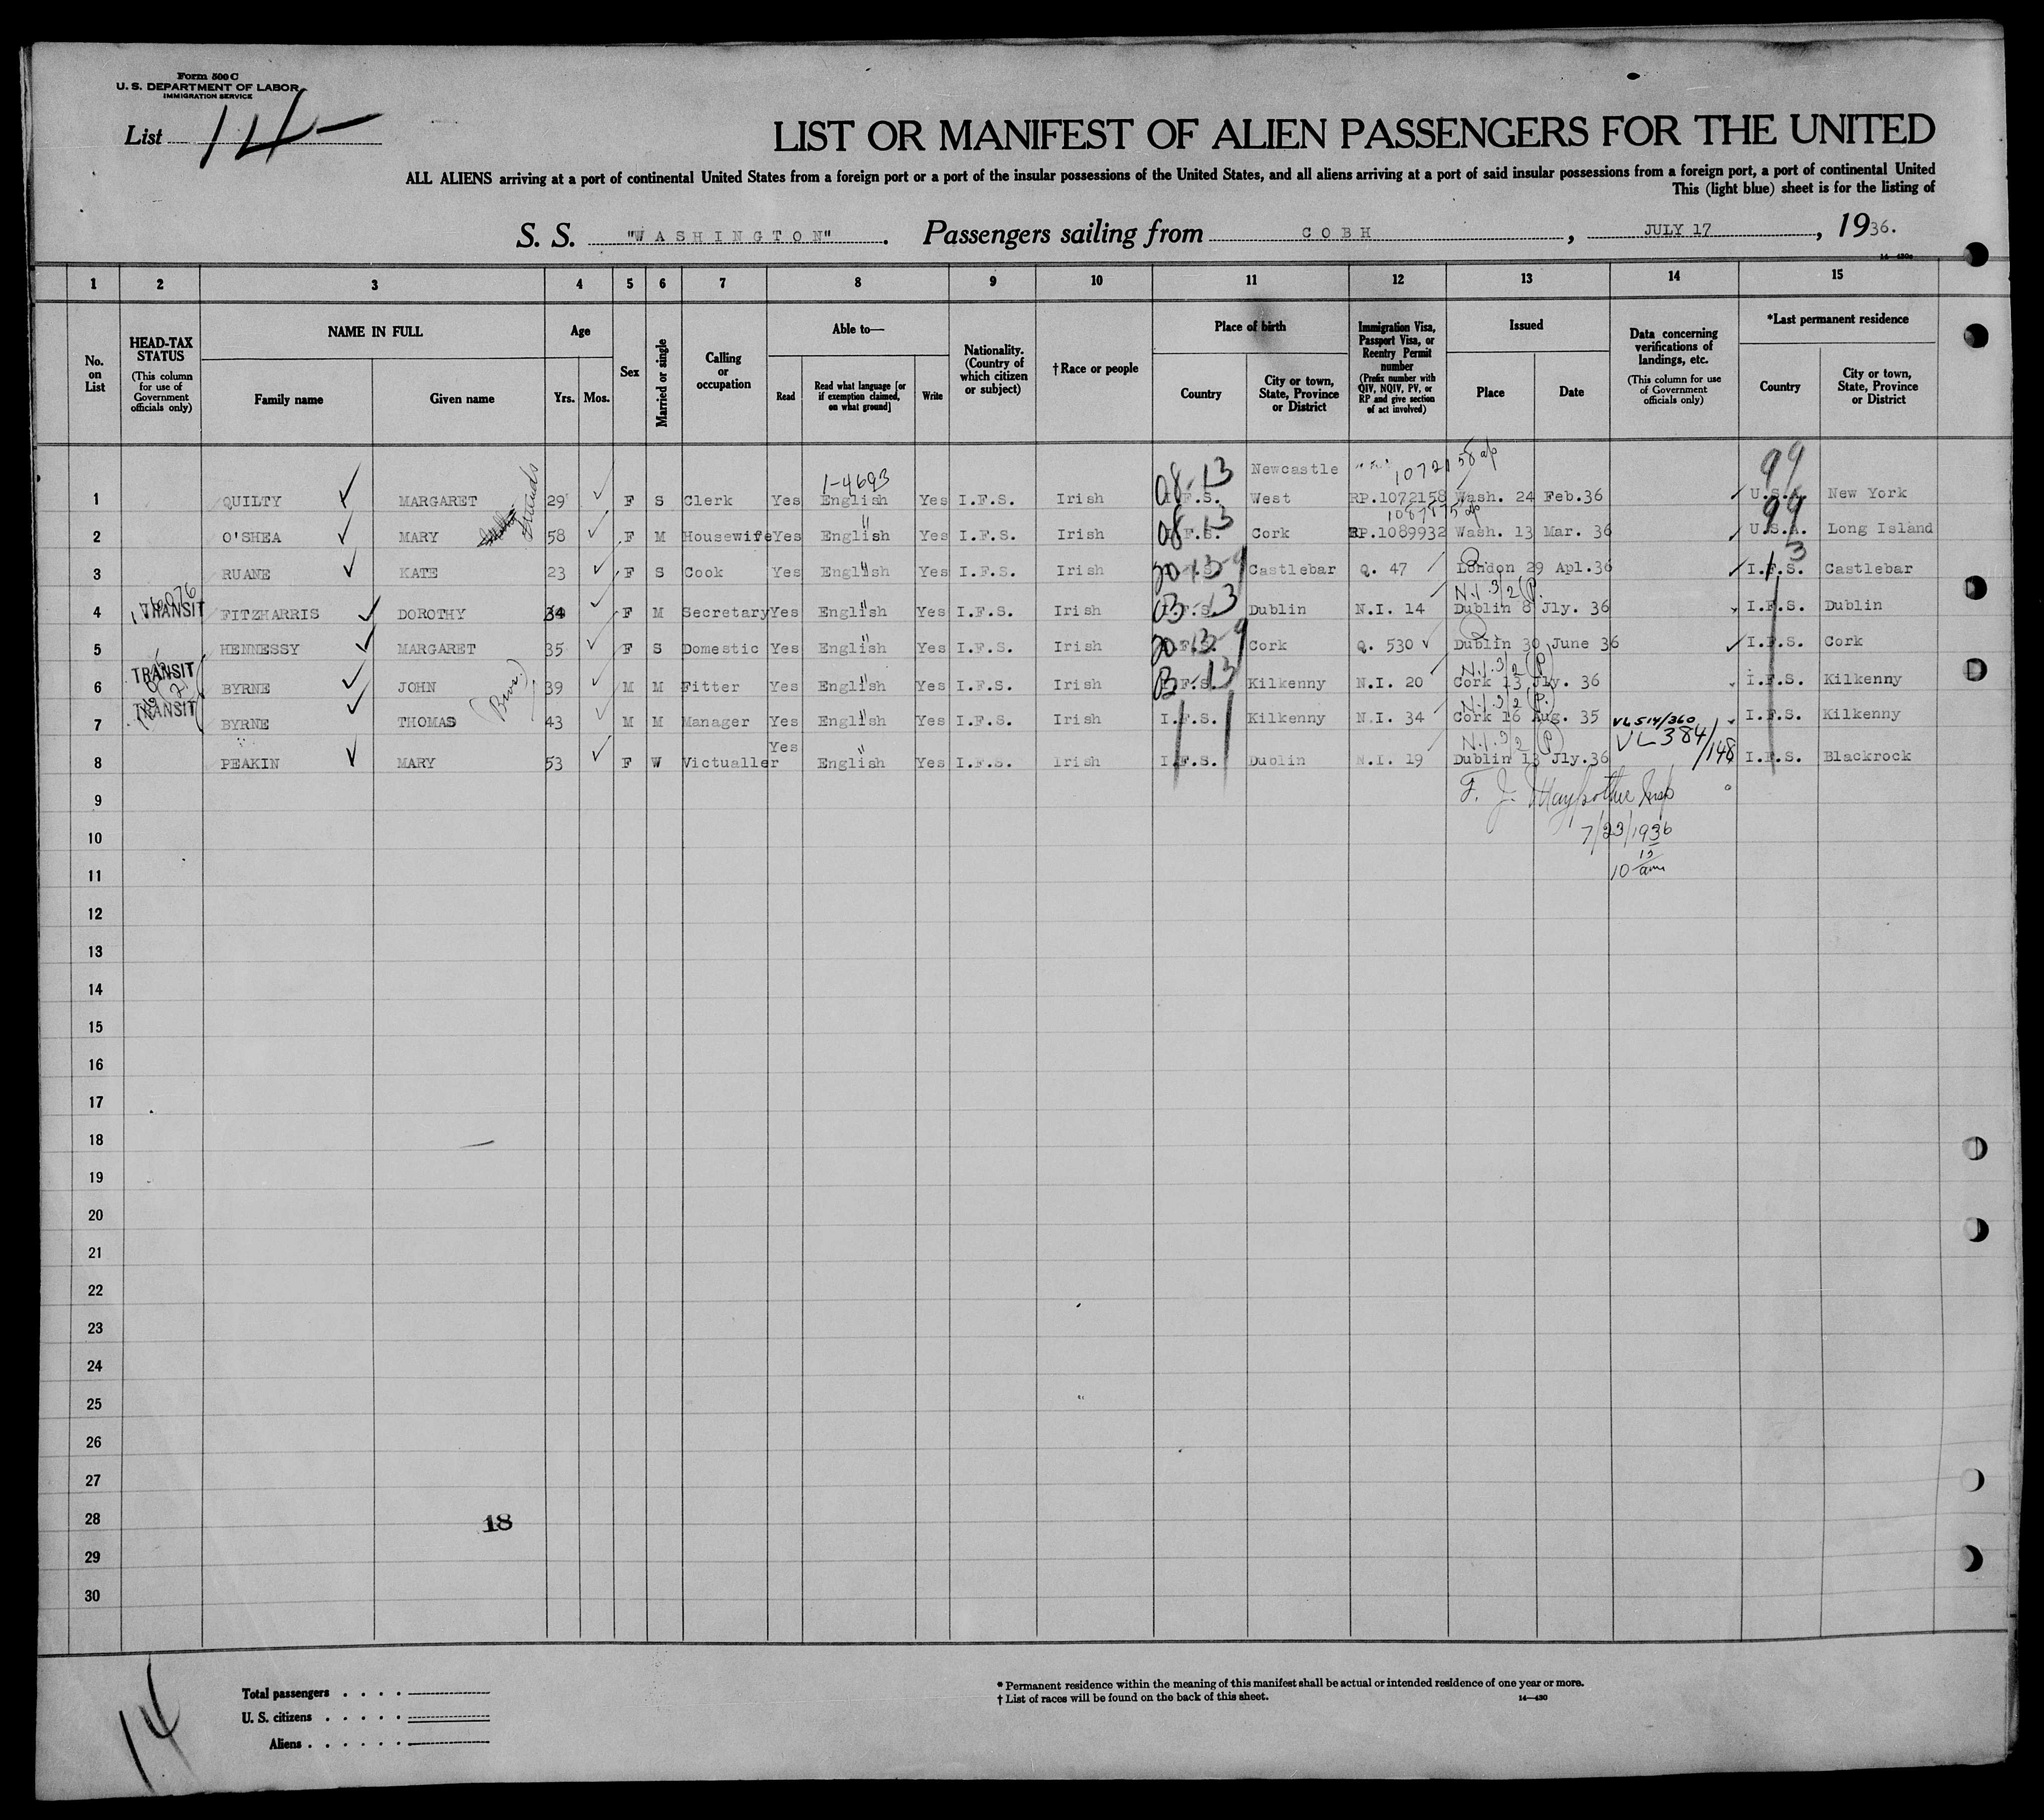 Form 500 C
U. S. DEPARTMENT OF LABOR
IMMIGRATION SERVICE
List 14
LIST OR MANIFEST OF ALIEN PASSENGERS FOR THE UNITED
ALL ALIENS arriving at a port of continental United States from a foreign port or a port of the insular possessions of the United States, and all aliens arriving at a port of said insular possessions from a foreign port, a port of continental United
This (light blue) sheet is for the listing of
S. S. "WASHINGTON". Passengers sailing from COBH, JULY 17, 1936.
14—430a
1 2 3 4 5 6 7 8 9 10 11 12 13 14 15
No. on List
HEAD-TAX STATUS (This column for use of Government officials only)
NAME IN FULL
Family name
Given name
Age
Yrs. Mos.
Sex
Married or single
Calling or occupation
Able to—
Read
Read what language [or if exemption claimed, on what ground]
Write
Nationality. (Country of which citizen or subject)
† Race or people
Place of birth
Country
City or town, State, Province or District
Immigration Visa, Passport Visa, or Reentry Permit number (Prefix number with QIV, NQIV, PV, or RP and give section of act involved)
Issued
Place
Date
Data concerning verifications of landings, etc. (This column for use of Government officials only)
*Last permanent residence
Country
City or town, State, Province or District
1-4693 08-13 Newcastle 1072158 99
1 QUILTY MARGARET 29 F S Clerk Yes English Yes I.F.S. Irish I.F.S. West RP.1072158 Wash. 24 Feb.36 U.S.A. New York
08-13 99
2 O'SHEA MARY 58 F M Housewife Yes English Yes I.F.S. Irish I.F.S. Cork RP.1089932 Wash. 13 Mar. 36 U.S.A. Long Island
3 RUANE KATE 23 F S Cook Yes English Yes I.F.S. Irish I.F.S. Castlebar Q. 47 London 29 Apl.36 I.F.S. Castlebar
N.I. 3/2 (P)
4 TRANSIT FITZHARRIS DOROTHY 34 F M Secretary Yes English Yes I.F.S. Irish I.F.S. Dublin N.I. 14 Dublin 8 Jly. 36 I.F.S. Dublin
5 HENNESSY MARGARET 35 F S Domestic Yes English Yes I.F.S. Irish I.F.S. Cork Q. 530 Dublin 30 June 36 I.F.S. Cork
N.I. 3/2 (P)
6 TRANSIT BYRNE JOHN 39 M M Fitter Yes English Yes I.F.S. Irish I.F.S. Kilkenny N.I. 20 Cork 13 Jly. 36 I.F.S. Kilkenny
(Bros.) N.I. 3/2 (P.)
7 TRANSIT BYRNE THOMAS 43 M M Manager Yes English Yes I.F.S. Irish I.F.S. Kilkenny N.I. 34 Cork 16 Aug. 35 VL 514/360 I.F.S. Kilkenny
N.I. 3/2 (P) VL 384/148
8 PEAKIN MARY 53 F W Victualler Yes English Yes I.F.S. Irish I.F.S. Dublin N.I. 19 Dublin 13 Jly.36 I.F.S. Blackrock
9 F. J.
10 7/23/1936
11 10 15 am
12
13
14
15
16
17
18
19
20
21
22
23
24
25
26
27
28
18
29
30
14
Total passengers . . . .
U. S. citizens . . . . .
Aliens . . . . . .
* Permanent residence within the meaning of this manifest shall be actual or intended residence of one year or more.
† List of races will be found on the back of this sheet. 14—430